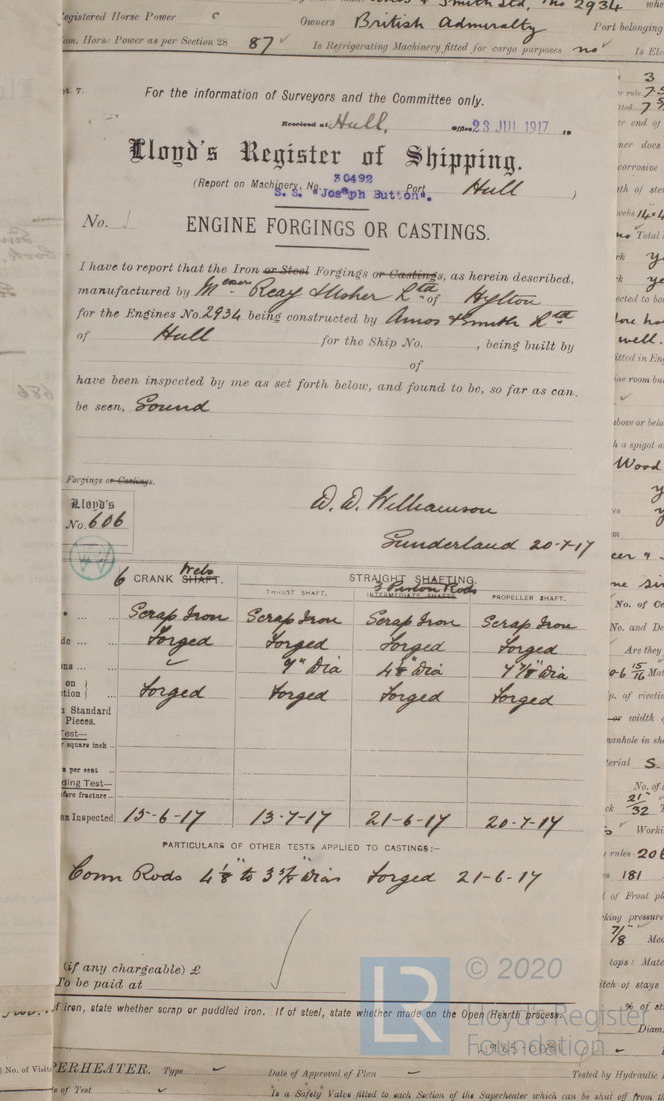 Registered Horse Power
Owners British Admiralty
Port belonging
Nom. Horse Power as per Section 28 87
Is Refrigerating Machinery fitted for cargo purposes no
Is Ele
For the information of Surveyors and the Committee only.
Received at Hull, Office 23 JUL 1917 19
Lloyd's Register of Shipping.
(Report on Machinery, No. 30492 Port Hull )
S.S. "Joseph Button".
No.
ENGINE FORGINGS OR CASTINGS.
I have to report that the Iron or Steel Forgings or Castings, as herein described,
manufactured by Messrs Reay & Usher Ltd of Hylton
for the Engines No. 2934 being constructed by Amos & Smith Ltd
of Hull for the Ship No. , being built by
of
have been inspected by me as set forth below, and found to be, so far as can
be seen, Sound
Forgings or Castings.
Lloyd's
No. 606
W. D. Williamson
Sunderland 20-7-17
6 CRANK Webs SHAFT.
STRAIGHT SHAFTING.
THRUST SHAFT.
3 Piston Rods
INTERMEDIATE SHAFTS
PROPELLER SHAFT.
Scrap Iron Scrap Iron Scrap Iron Scrap Iron
Forged Forged Forged Forged
7" Dia 4 1/8" Dia 7 7/8" Dia
Forged Forged Forged Forged
Standard
Pieces.
Test—
square inch
per cent
ding Test—
before fracture
en Inspected 15-6-17 13-7-17 21-6-17 20-7-17
PARTICULARS OF OTHER TESTS APPLIED TO CASTINGS:—
Conn Rods 4 1/8" to 3 7/8" Dia Forged 21-6-17
(if any chargeable) £
To be paid at
If iron, state whether scrap or puddled iron. If of steel, state whether made on the Open Hearth process.
© 2020
Lloyd's Register
Foundation
PERHEATER. Type
Date of Approval of Plan
Tested by Hydraulic
No. of Visits
e of Test
Is a Safety Valve fitted to each Section of the Superheater which can be shut off from